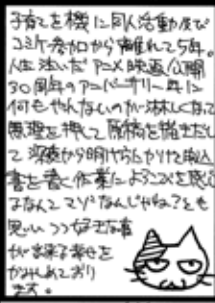 子育てを機に同人活動及び
コミケ参加から離れて5年。
人生注いだアニメ映画公開
30周年のアニバーサリー年に
何もやんないのか淋しくなって
無理を押して原稿を描きだし
て深夜から明け方にかけて申込
書を書く作業によろこびを感じ
るなんてマゾなんじゃね?とも
思いつつ好きな事
が出来る幸せを
かみしめており
ます。